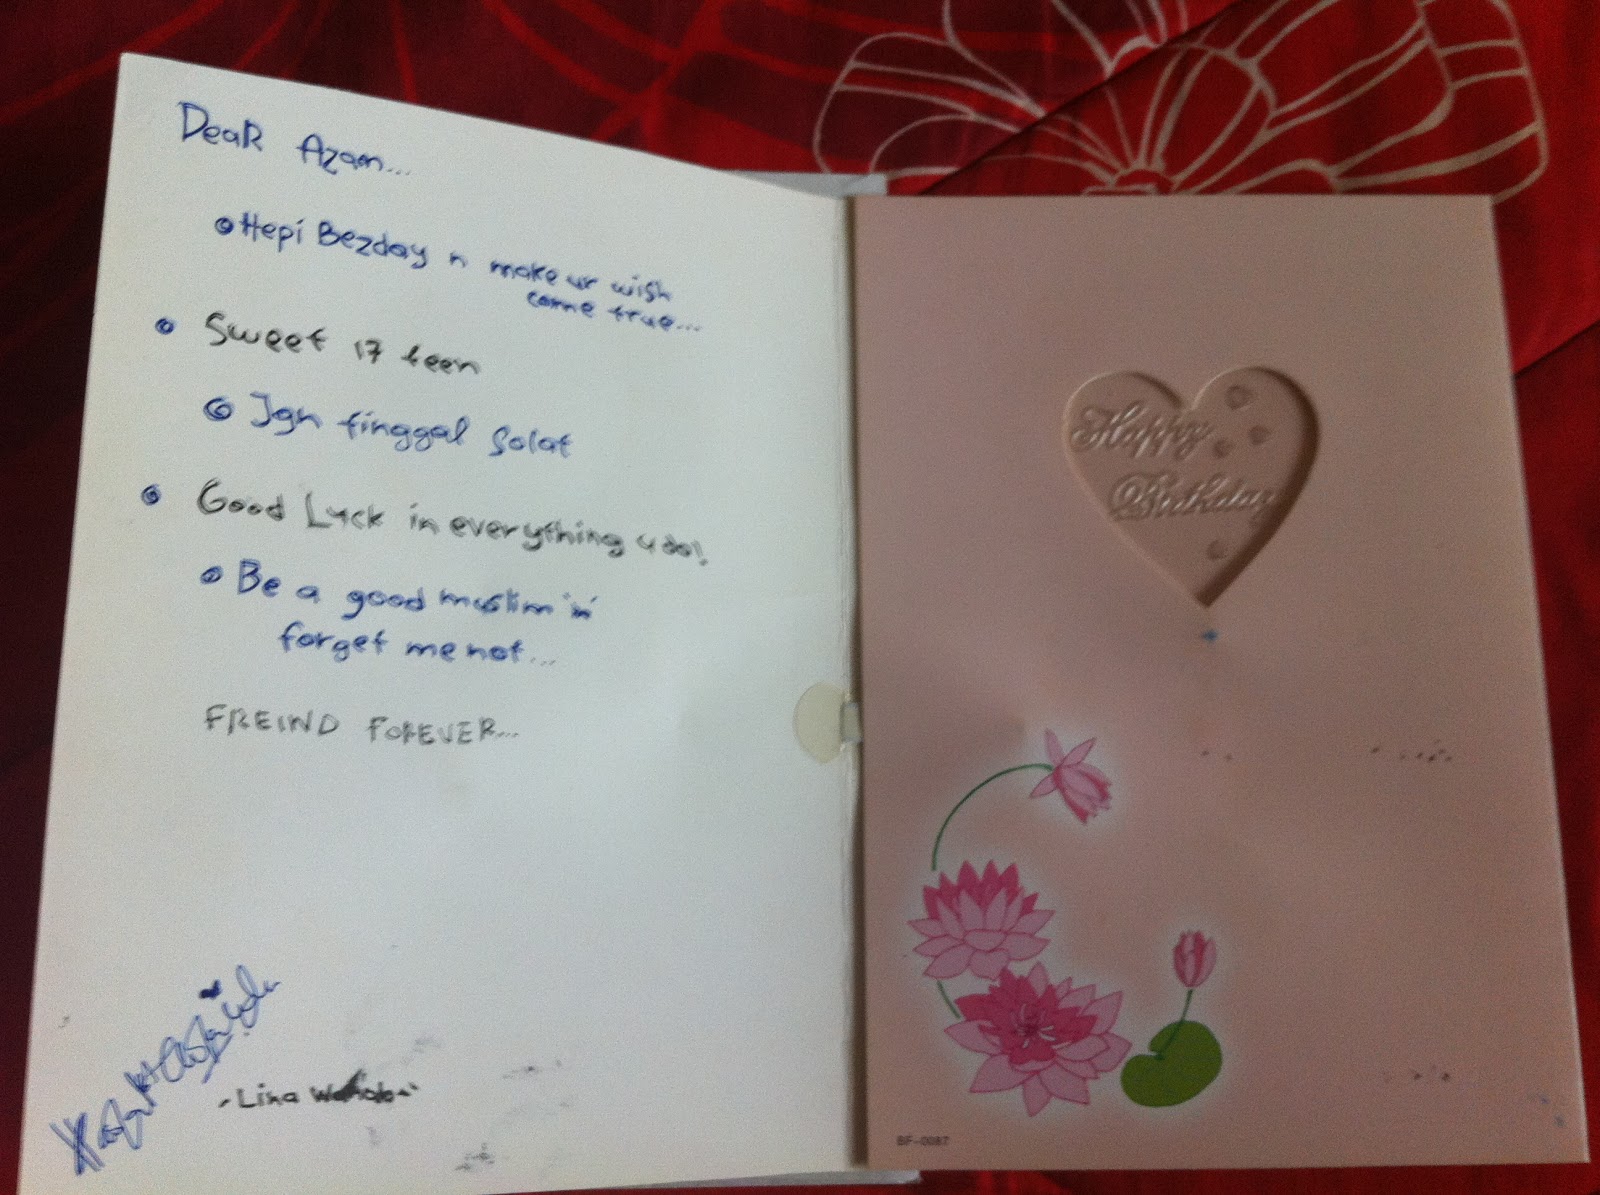 DeaR Azam...
Hepi Bezday n make ur wish
come true...
Sweet 17 teen
Jgn tinggal Solat
Good Luck in everything u do!
Be a good muslim 'n'
forget me not...
FREIND FOREVER...
-Lina
Happy
Birthday
BF-0087